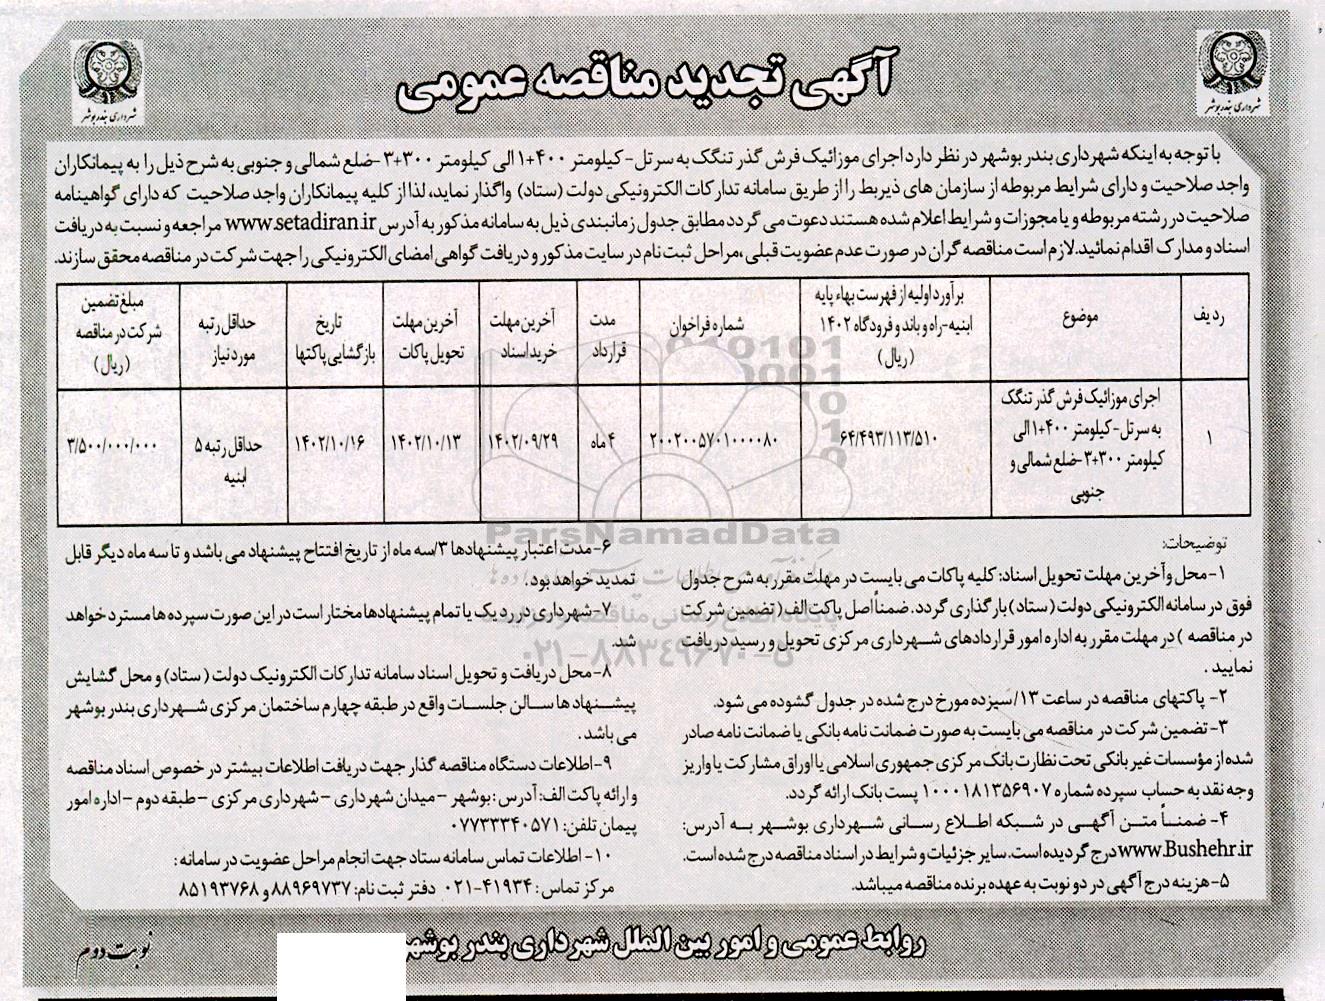 آگهی تجدید مناقصه عمومی
شهرداری بندر بوشهر
شهرداری بندر بوشهر
با توجه به اینکه شهرداری بندر بوشهر در نظر دارد اجرای موزائیک فرش گذر تنگک به سرتل - کیلومتر ۱+۴۰۰ الی کیلومتر ۳+۳۰۰ -ضلع شمالی و جنوبی به شرح ذیل را به پیمانکاران
واجد صلاحیت و دارای شرایط مربوطه از سازمان های ذیربط را از طریق سامانه تدارکات الکترونیکی دولت (ستاد) واگذار نماید، لذا از کلیه پیمانکاران واجد صلاحیت که دارای گواهینامه
صلاحیت در رشته مربوطه و یا مجوزات و شرایط اعلام شده هستند دعوت می گردد مطابق جدول زمانبندی ذیل به سامانه مذکور به آدرس www.setadiran.ir مراجعه و نسبت به دریافت
اسناد و مدارک اقدام نمائید. لازم است مناقصه گران در صورت عدم عضویت قبلی ،مراحل ثبت نام در سایت مذکور و دریافت گواهی امضای الکترونیکی را جهت شرکت در مناقصه محقق سازند.
ردیف
موضوع
برآورد اولیه از فهرست بهاء پایه
ابنیه-راه و باند و فرودگاه ۱۴۰۲
(ریال)
شماره فراخوان
مدت
قرارداد
آخرین مهلت
خرید اسناد
آخرین مهلت
تحویل پاکات
تاریخ
بازگشایی پاکتها
حداقل رتبه
مورد نیاز
مبلغ تضمین
شرکت در مناقصه
(ریال)
۱
اجرای موزائیک فرش گذر تنگک
به سرتل - کیلومتر ۱+۴۰۰ الی
کیلومتر ۳+۳۰۰ -ضلع شمالی و
جنوبی
۶۴/۴۹۳/۱۱۳/۵۱۰
۲۰۰۲۰۰۵۷۰۱۰۰۰۰۸۰
۴ ماه
۱۴۰۲/۰۹/۲۹
۱۴۰۲/۱۰/۱۳
۱۴۰۲/۱۰/۱۶
حداقل رتبه ۵
ابنیه
۳/۵۰۰/۰۰۰/۰۰۰
ParsNamadData
پایگاه اطلاع رسانی مناقصه و مزایده
۰۲۱-۸۸۳۴۹۶۷۰-۵
توضیحات:
۱-محل و آخرین مهلت تحویل اسناد: کلیه پاکات می بایست در مهلت مقرر به شرح جدول
فوق در سامانه الکترونیکی دولت (ستاد) بارگذاری گردد. ضمناً اصل پاکت الف ( تضمین شرکت
در مناقصه ) در مهلت مقرر به اداره امور قراردادهای شهرداری مرکزی تحویل و رسید دریافت
نمایید .
۲- پاکتهای مناقصه در ساعت ۱۳/سیزده مورخ درج شده در جدول گشوده می شود.
۳-تضمین شرکت در مناقصه می بایست به صورت ضمانت نامه بانکی یا ضمانت نامه صادر
شده از مؤسسات غیر بانکی تحت نظارت بانک مرکزی جمهوری اسلامی یا اوراق مشارکت یا واریز
وجه نقد به حساب سپرده شماره ۱۰۰۰۱۸۱۳۵۶۹۰۷ پست بانک ارائه گردد.
۴- ضمنـاً متـن آگهـی در شبکه اطلاع رسانی شهرداری بوشهر به آدرس:
www.Bushehr.ir درج گردیده است. سایر جزئیات و شرایط در اسناد مناقصه درج شده است.
۵-هزینه درج آگهی در دو نوبت به عهده برنده مناقصه میباشد.
۶-مدت اعتبار پیشنهادها ۳/سه ماه از تاریخ افتتاح پیشنهاد می باشد و تا سه ماه دیگر قابل
تمدید خواهد بود.
۷-شهرداری در رد یک یا تمام پیشنهادها مختار است در این صورت سپرده ها مسترد خواهد
شد.
۸-محل دریافت و تحویل اسناد سامانه تدارکات الکترونیک دولت ( ستاد) و محل گشایش
پیشنهادها سالن جلسات واقع در طبقه چهارم ساختمان مرکزی شهرداری بندر بوشهر
می باشد .
۹-اطلاعات دستگاه مناقصه گذار جهت دریافت اطلاعات بیشتر در خصوص اسناد مناقصه
و ارائه پاکت الف: آدرس : بوشهر -میدان شهرداری -شهرداری مرکزی -طبقه دوم -اداره امور
پیمان تلفن: ۰۷۷۳۳۳۴۰۵۷۱
۱۰- اطلاعات تماس سامانه ستاد جهت انجام مراحل عضویت در سامانه :
مرکز تماس : ۴۱۹۳۴-۰۲۱ دفتر ثبت نام: ۸۸۹۶۹۷۳۷ و ۸۵۱۹۳۷۶۸
روابط عمومی و امور بین الملل شهرداری بندر بوشهر
نوبت دوم